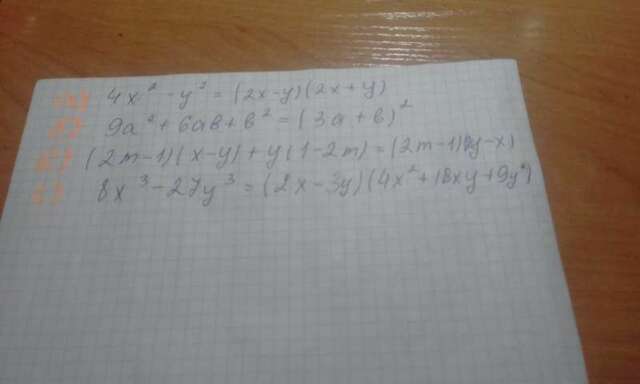 4x² - y² = (2x-y)(2x+y)
9a² + 6ab + b² = (3a + b)²
(2m-1)(x-y) + y(1-2m) = (2m-1)(2y-x)
8x³ - 27y³ = (2x - 3y)(4x² + 18xy + 9y²)